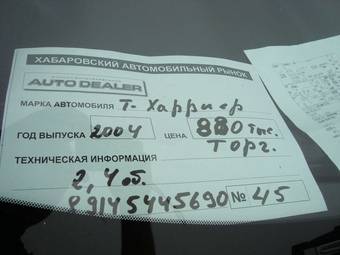 ХАБАРОВСКИЙ АВТОМОБИЛЬНЫЙ РЫНОК
AUTO DEALER
МАРКА АВТОМОБИЛЯ Т- Харриер
ГОД ВЫПУСКА 2004 ЦЕНА 880 тыс.
ТЕХНИЧЕСКАЯ ИНФОРМАЦИЯ Торг.
2,4 об.
89145445690 № 45